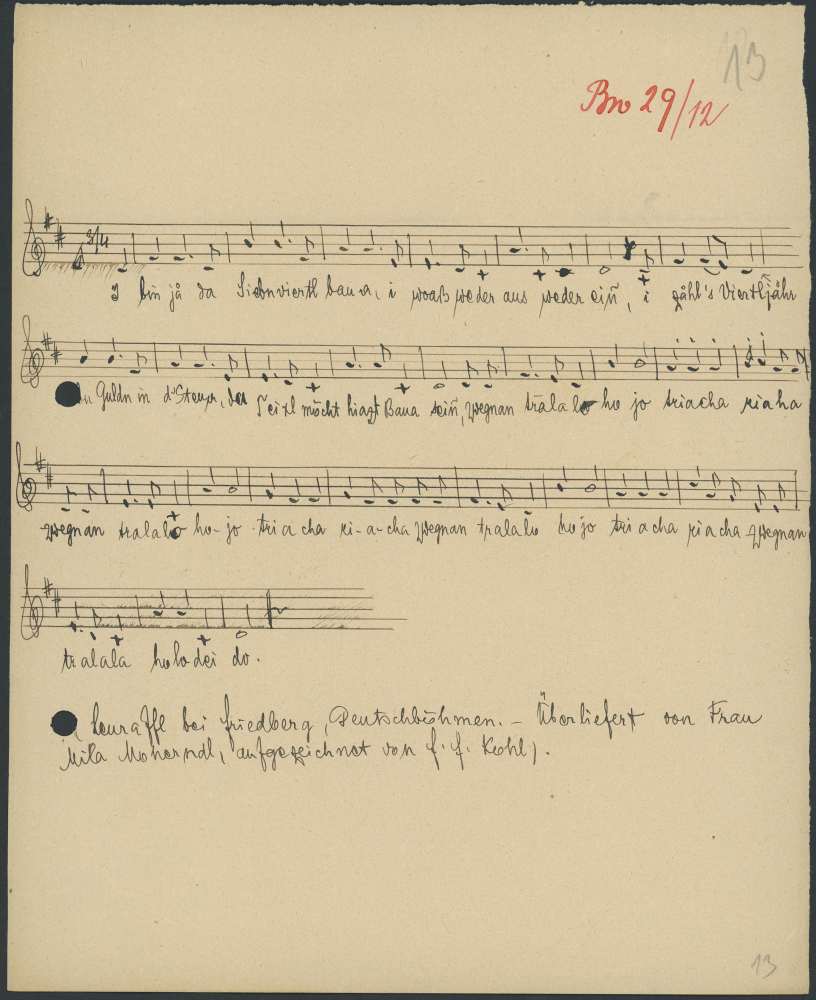 13
Bm 29/12
3/4
I bin jå da Siebnviertl baua, i woaß weder aus weder eiñ, i zåhl's Viertljåhr
Guldn in d'Steuer, der Teixl möcht hiazt Baua seiñ, zwegnan trålalo ho jo triacha riaha
zwegnan tralalo ho-jo tri a cha ri-a-cha zwegnan tralalo ho jo tri a cha ri a cha zwegnan
tralala holodei do.
bei Friedberg, Deutschböhmen. - Überliefert von Frau
Mila aufgezeichnet von f. f. Kohl).
13